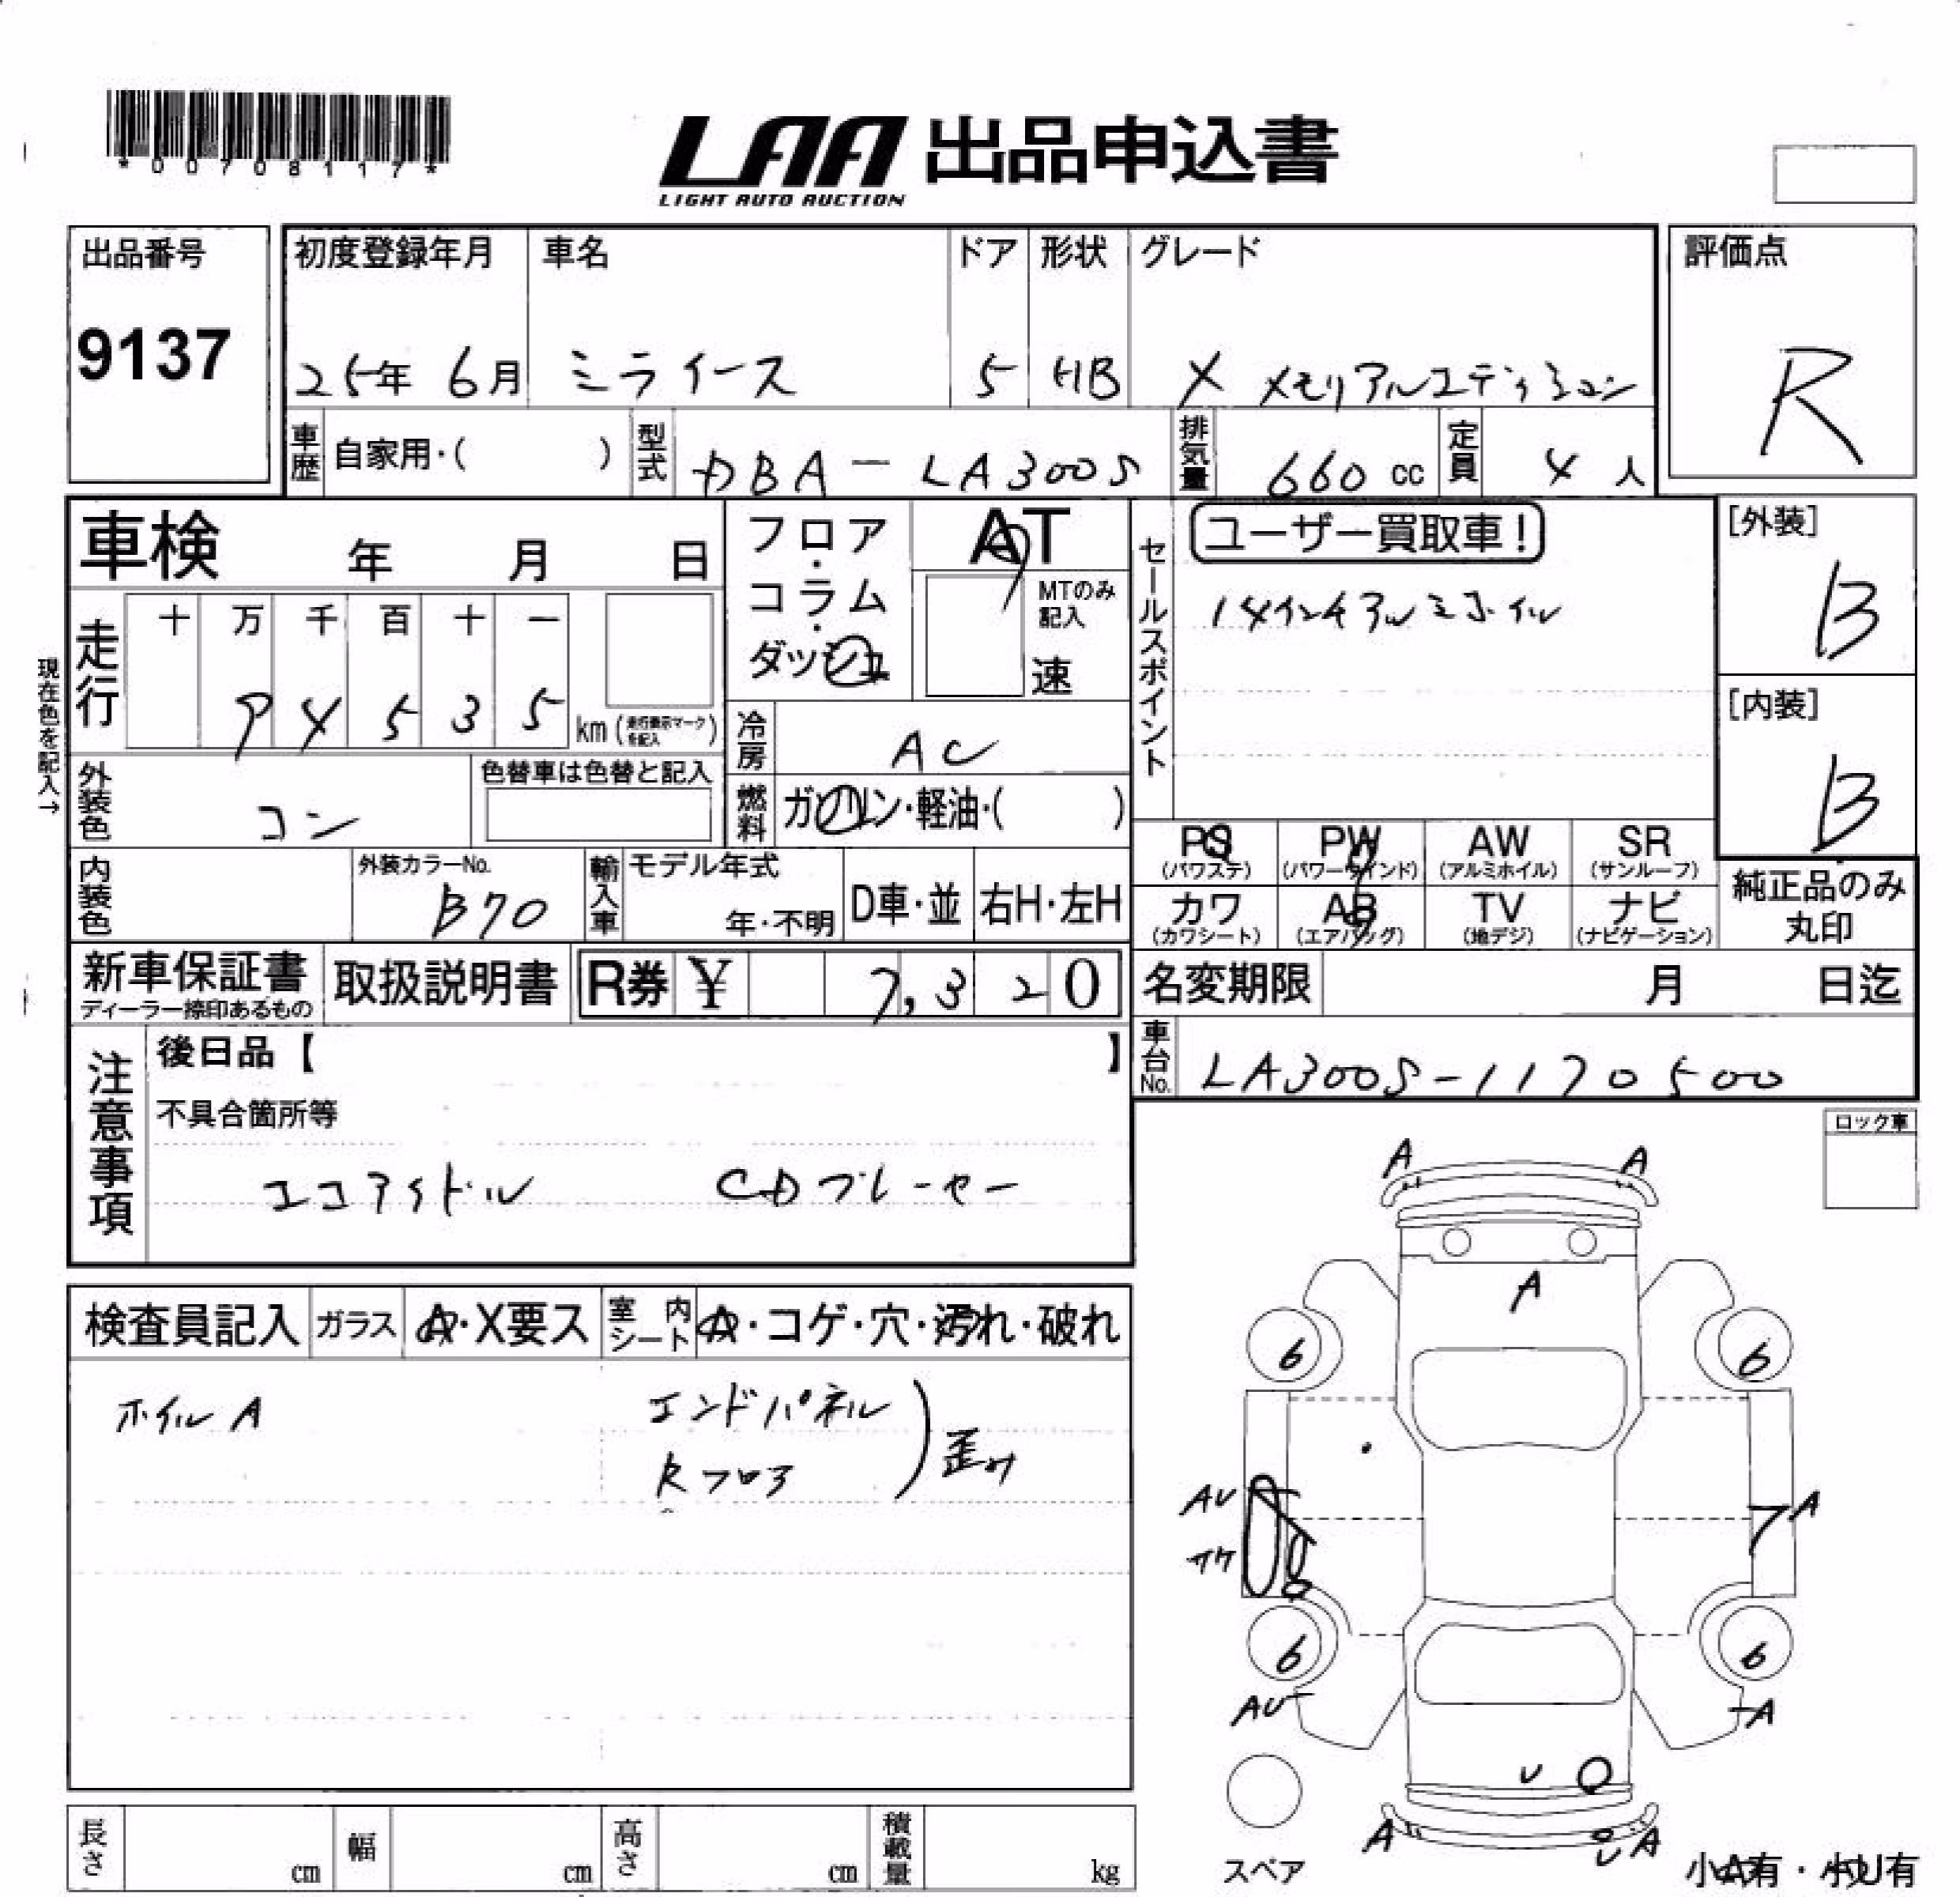 *00708117*
LAA 出品申込書
LIGHT AUTO AUCTION
出品番号
9137
初度登録年月
25年 6月
車名
ミライース
ドア
5
形状
HB
グレード
X メモリアルエディション
評価点
R
車歴
自家用・( )
型式
DBA-LA300S
排気量
660 cc
定員
4 人
車検 年 月 日
フロア・コラム・ダッシュ
AT
MTのみ記入
速
セールスポイント
ユーザー買取車!
14インチアルミホイル
[外装]
B
[内装]
B
現在色を記入→
走行
十 万 千 百 十 一
9 4 5 3 5
km (走行表示マークを記入)
冷房
AC
外装色
コン
色替車は色替と記入
燃料
ガソリン・軽油・( )
PS
(パワステ)
PW
(パワーウインド)
AW
(アルミホイル)
SR
(サンルーフ)
カワ
(カワシート)
AB
(エアバッグ)
TV
(地デジ)
ナビ
(ナビゲーション)
純正品のみ
丸印
内装色
外装カラーNo.
B70
輸入車
モデル年式
年・不明
D車・並
右H・左H
新車保証書
ディーラー捺印あるもの
取扱説明書
R券 ¥ 7,320
名変期限 月 日迄
車台No.
LA300S-1170500
注意事項
後日品【 】
不具合箇所等
エコアイドル CDプレーヤー
ロック車
検査員記入
ガラス
A・X要ス
室内シート
A・コゲ・穴・汚れ・破れ
ホイルA
エンドパネル
Rフロア
歪み
A A
A
6 6
AU
サケ
A
6 6
AU
A
U
A
U A
スペア
小A有・小U有
長さ cm
幅 cm
高さ cm
積載量 kg